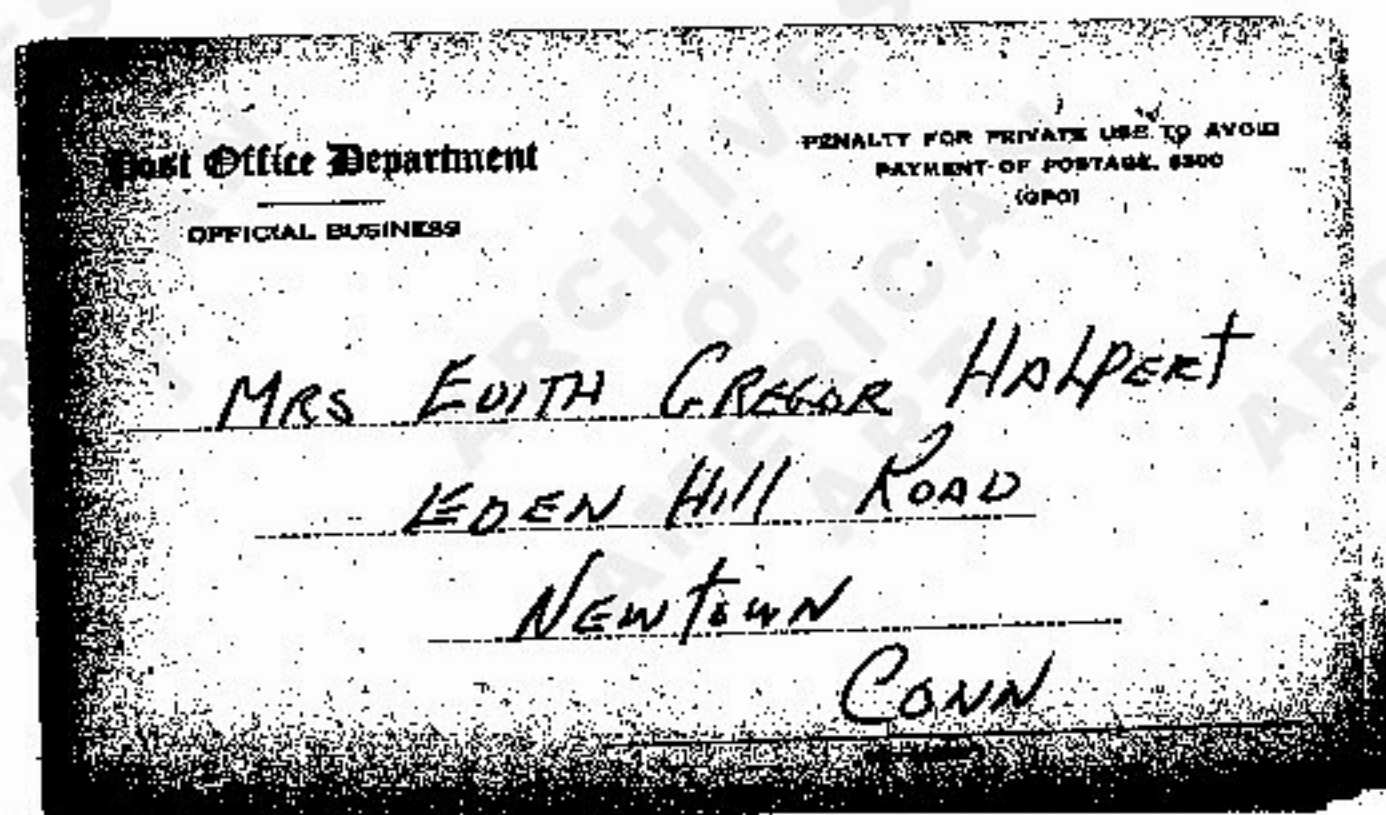 Post Office Department
OFFICIAL BUSINESS
PENALTY FOR PRIVATE USE TO AVOID
PAYMENT OF POSTAGE, $300
(GPO)
MRS EDITH GREGOR HALPERT
EDEN Hill ROAD
NEWTOWN
CONN
ARCHIVES
OF
AMERICAN
ART